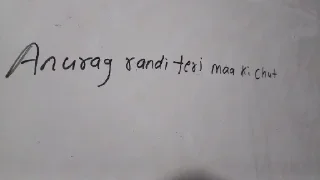 Anurag randi teri maa ki chut